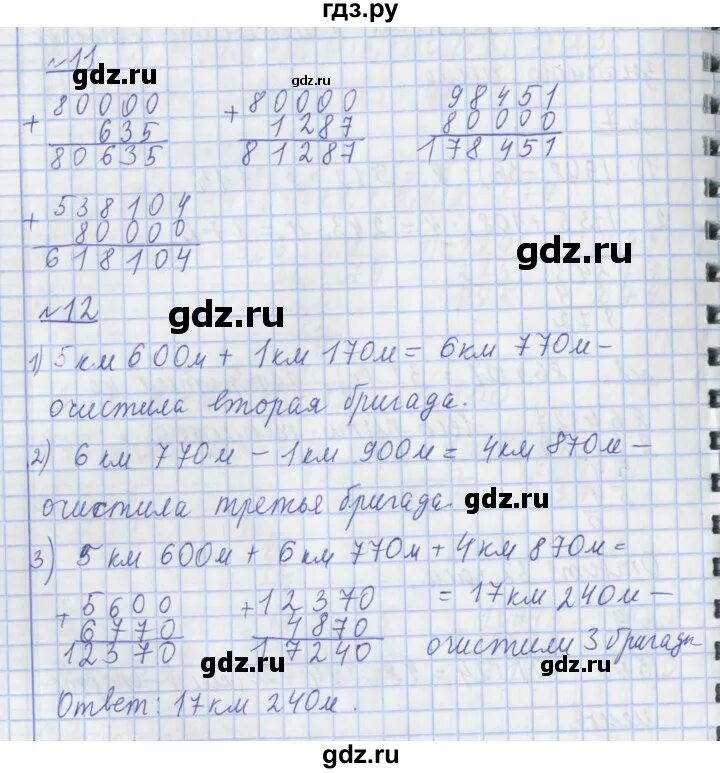 гдз.ру
№11
gdz.ru
gdz.ru
+ 80000
635
80635
+ 80000
1287
81287
98451
80000
178451
+ 538104
80000
618104
gdz.ru
№12
gdz.ru
1) 5 км 600м + 1 км 170м = 6 км 770м –
очистила вторая бригада.
2) 6 км 770м – 1 км 900м = 4 км 870м –
очистила третья бригада.
gdz.ru
3) 5 км 600м + 6 км 770м + 4 км 870м =
= 17 км 240м –
очистили 3 бригады
+ 5600
6770
12370
+ 12370
4870
17240
gdz.ru
gdz.ru
Ответ: 17 км 240м.
gdz.ru